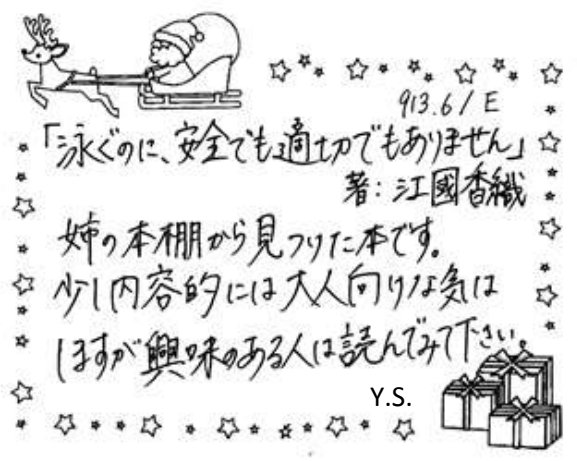 913.6/E
「泳ぐのに、安全でも適切でもありません」
著：江國香織
姉の本棚から見つけた本です。
少し内容的には大人向けな気は
しますが興味のある人は読んでみて下さい。
Y.S.